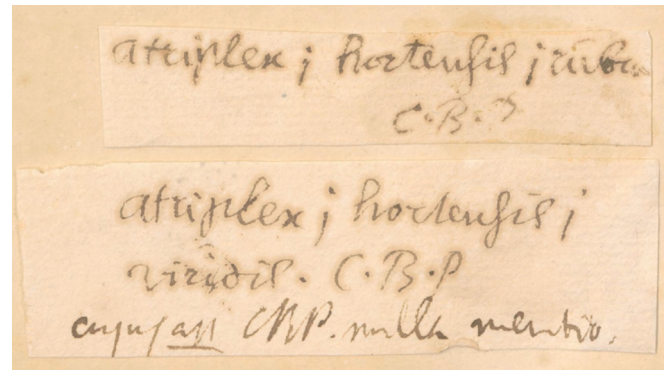 atriplex ; hortensis ; rubra
C.B.P
atriplex ; hortensis ;
viridis. C.B.P
cujus ap CBP. nulla mentio.